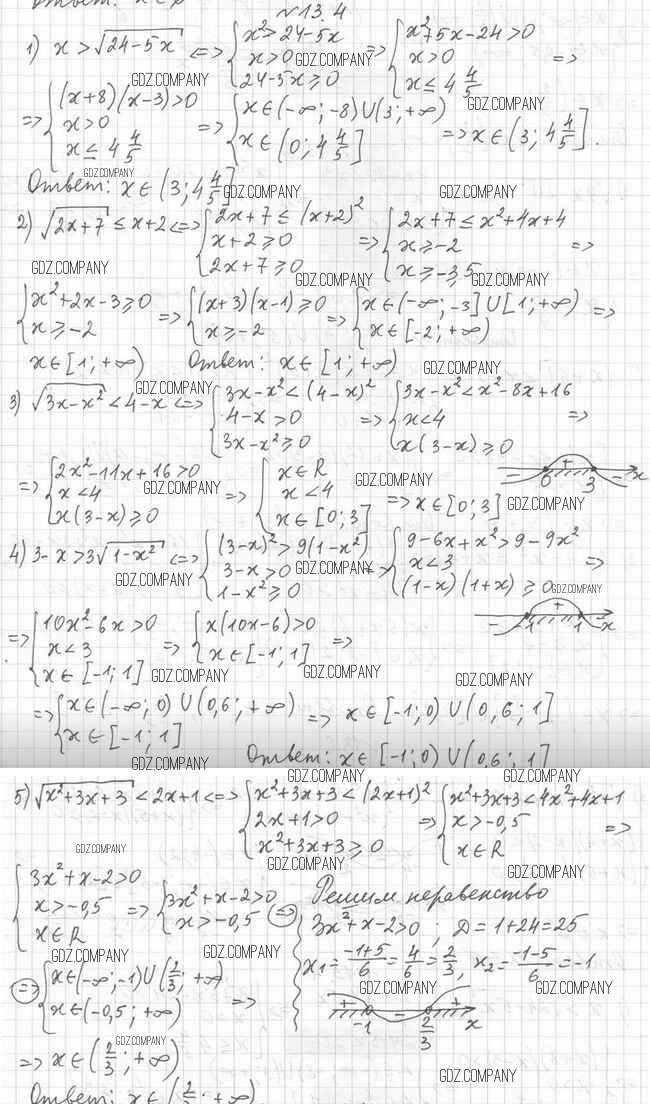 №13.4
1) x > √(24-5x) <=> { x² > 24-5x; x > 0; 24-5x ≥ 0 => { x²+5x-24 > 0; x > 0; x ≤ 4 4/5 =>
=> { (x+8)(x-3) > 0; x > 0; x ≤ 4 4/5 => { x ∈ (-∞; -8) ∪ (3; +∞); x ∈ (0; 4 4/5] => x ∈ (3; 4 4/5].
Ответ: x ∈ (3; 4 4/5]
2) √(2x+7) ≤ x+2 <=> { 2x+7 ≤ (x+2)²; x+2 ≥ 0; 2x+7 ≥ 0 => { 2x+7 ≤ x²+4x+4; x ≥ -2; x ≥ -3,5 =>
{ x²+2x-3 ≥ 0; x ≥ -2 => { (x+3)(x-1) ≥ 0; x ≥ -2 => { x ∈ (-∞; -3] ∪ [1; +∞); x ∈ [-2; +∞) =>
x ∈ [1; +∞) Ответ: x ∈ [1; +∞)
3) √(3x-x²) < 4-x <=> { 3x-x² < (4-x)²; 4-x > 0; 3x-x² ≥ 0 => { 3x-x² < x²-8x+16; x < 4; x(3-x) ≥ 0 =>
=> { 2x²-11x+16 > 0; x < 4; x(3-x) ≥ 0 => { x ∈ R; x < 4; x ∈ [0; 3] => x ∈ [0; 3]
- 0 + 3 - x
4) 3-x > 3√(1-x²) <=> { (3-x)² > 9(1-x²); 3-x > 0; 1-x² ≥ 0 => { 9-6x+x² > 9-9x²; x < 3; (1-x)(1+x) ≥ 0 =>
- -1 + 1 - x
=> { 10x²-6x > 0; x < 3; x ∈ [-1; 1] => { x(10x-6) > 0; x ∈ [-1; 1] =>
=> { x ∈ (-∞; 0) ∪ (0,6; +∞); x ∈ [-1; 1] => x ∈ [-1; 0) ∪ (0,6; 1]
Ответ: x ∈ [-1; 0) ∪ (0,6; 1]
5) √(x²+3x+3) < 2x+1 <=> { x²+3x+3 < (2x+1)²; 2x+1 > 0; x²+3x+3 ≥ 0 => { x²+3x+3 < 4x²+4x+1; x > -0,5; x ∈ R =>
{ 3x²+x-2 > 0; x > -0,5; x ∈ R => { 3x²+x-2 > 0; x > -0,5 =>
Решим неравенство
3x²+x-2 > 0; Д = 1+24 = 25
x₁ = (-1+5)/6 = 4/6 = 2/3, x₂ = (-1-5)/6 = -1
+ -1 - 2/3 + x
=> { x ∈ (-∞; -1) ∪ (2/3; +∞); x ∈ (-0,5; +∞) =>
=> x ∈ (2/3; +∞)
Ответ: x ∈ (2/3; +∞)
GDZ.COMPANY